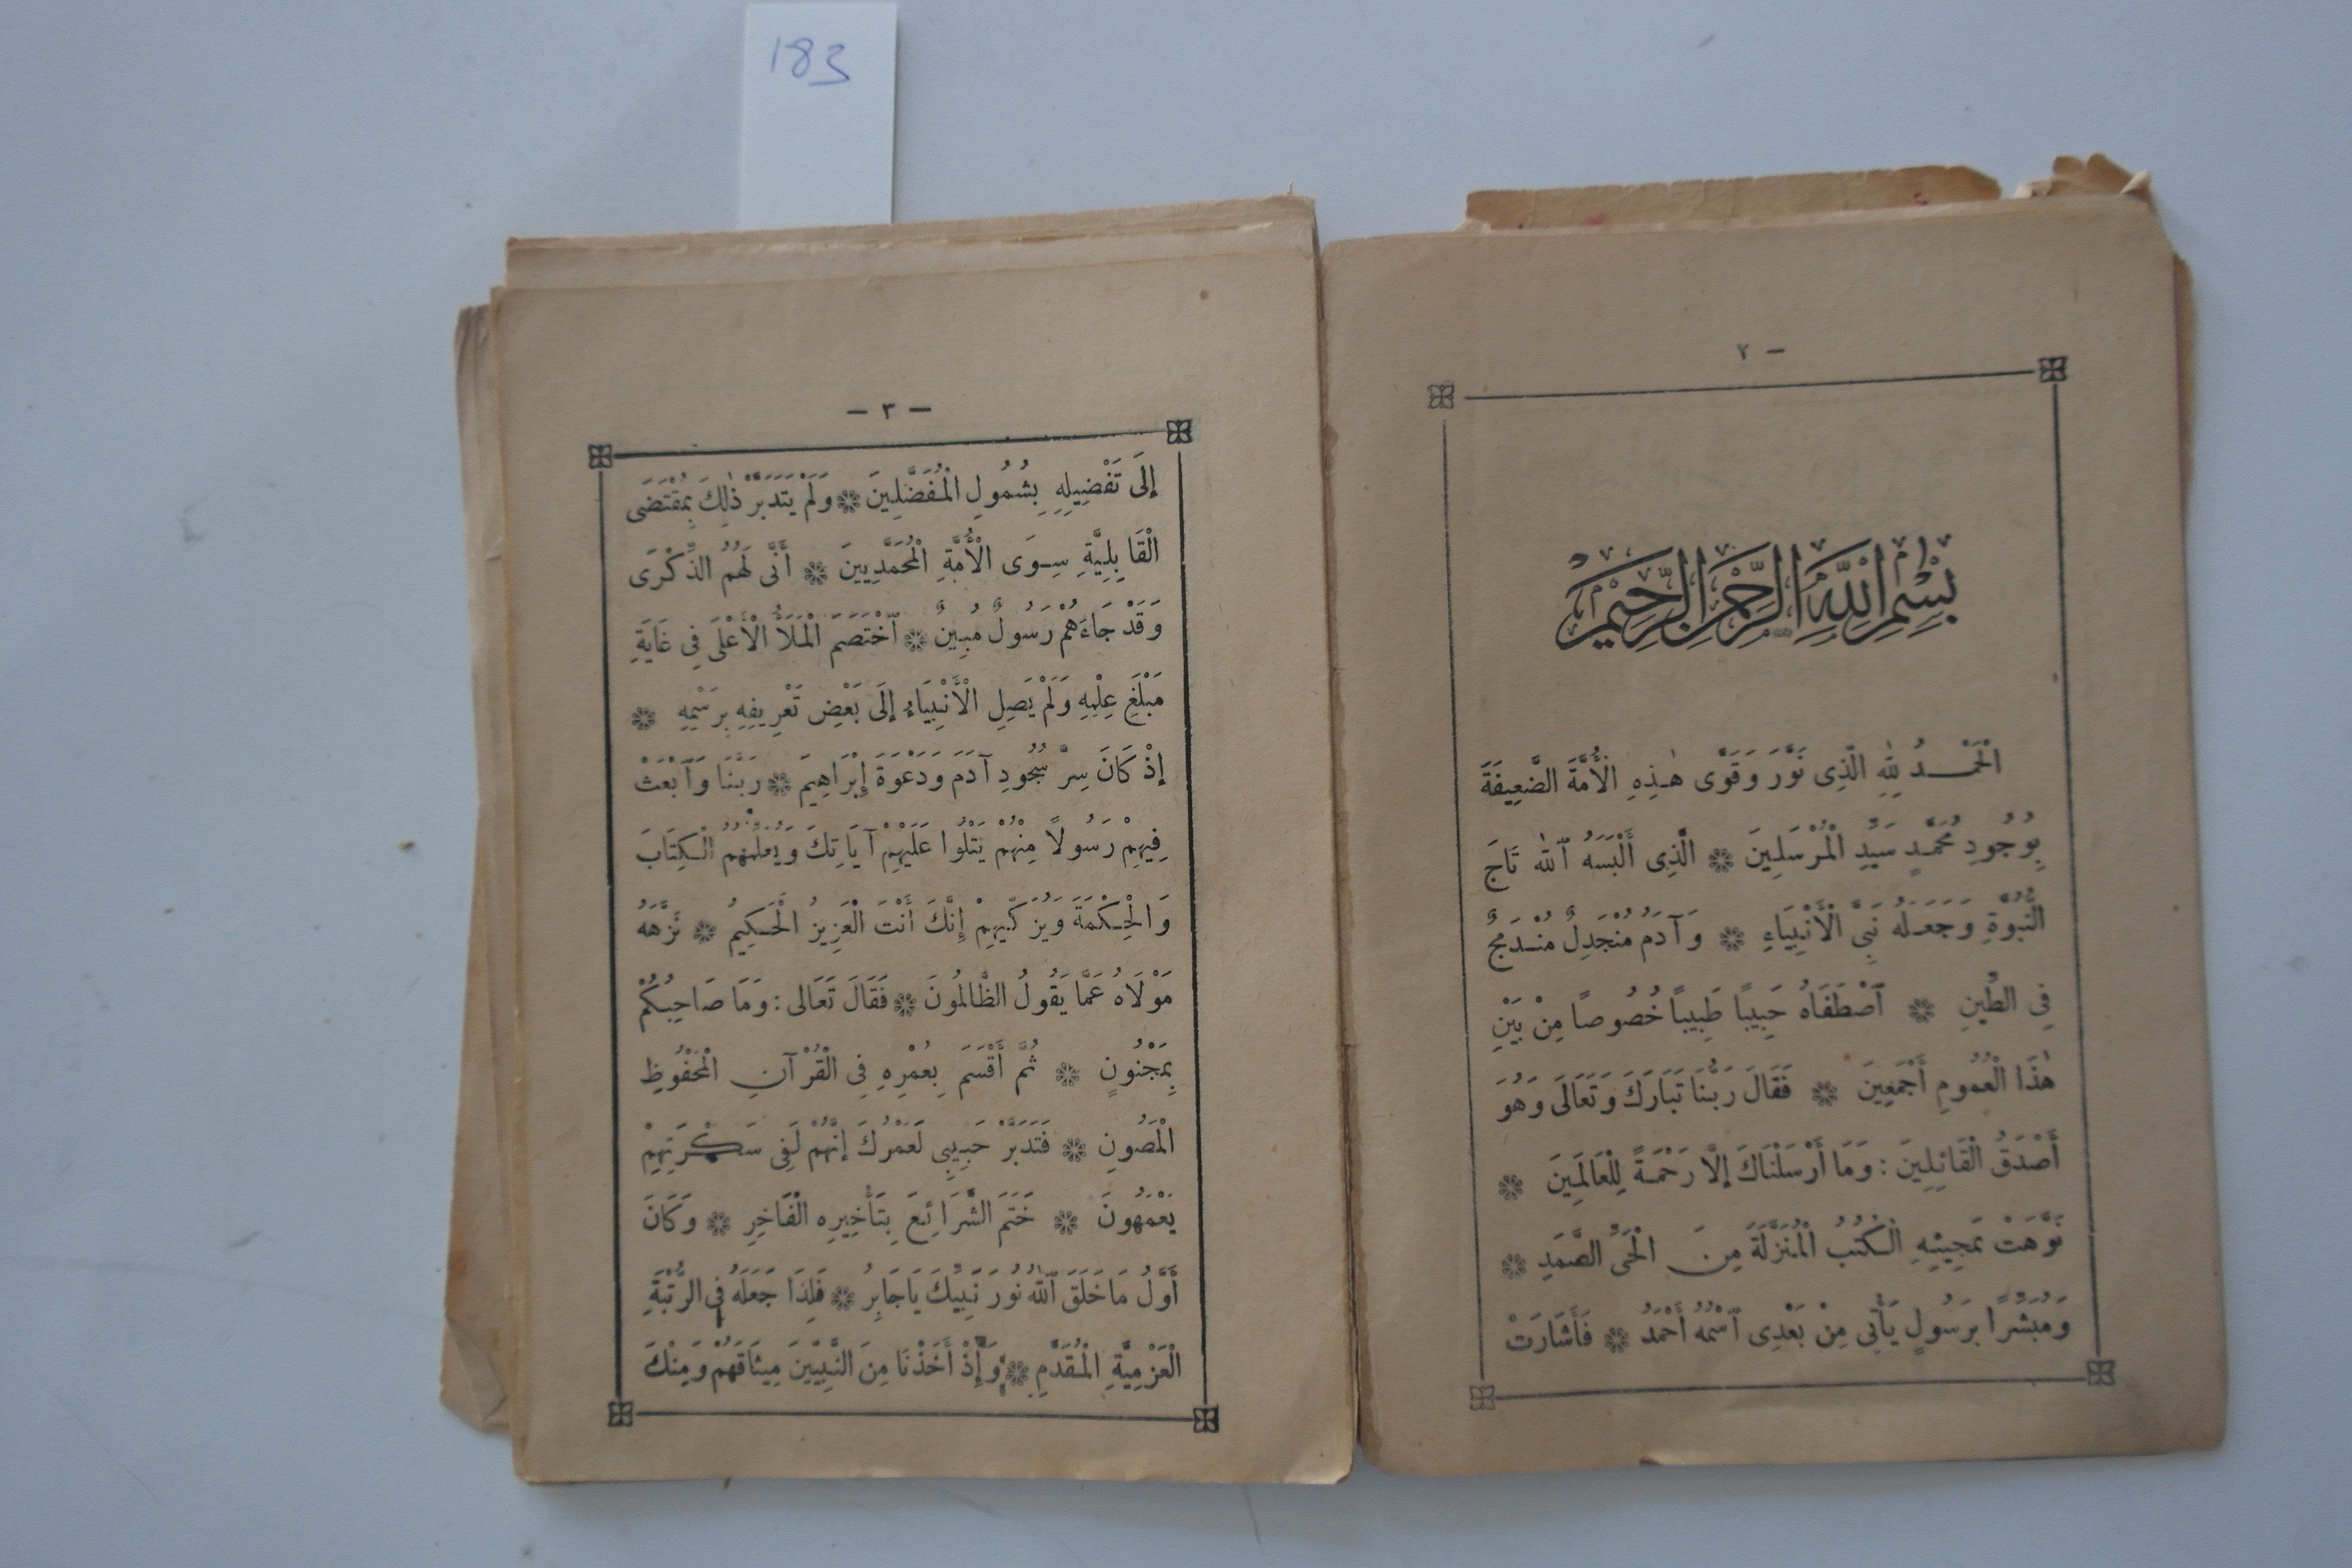 183
٢ –
بِسْمِ اللهِ الرَّحْمٰنِ الرَّحِيْمِ
الْحَمْدُ لِلّٰهِ الَّذِى نَوَّرَ وَقَوَّى هٰذِهِ الْأُمَّةَ الضَّعِيفَةَ
بِوُجُودِ مُحَمَّدٍ سَيِّدِ الْمُرْسَلِينَ ❁ الَّذِى أَلْبَسَهُ ٱللّٰه تَاجَ
النُّبُوَّةِ وَجَعَلَهُ نَبِىَّ الْأَنْبِيَاءِ ❁ وَآدَمُ مُنْجَدِلٌ مُنْدَمِجٌ
فِى الطِّينِ ❁ ٱصْطَفَاهُ حَبِيبًا طَبِيبًا خُصُوصًا مِنْ بَيْنِ
هٰذَا الْعُمُومِ أَجْمَعِينَ ❁ فَقَالَ رَبُّنَا تَبَارَكَ وَتَعَالَى وَهُوَ
أَصْدَقُ الْقَائِلِينَ : وَمَا أَرْسَلْنَاكَ إِلَّا رَحْمَةً لِلْعَالَمِينَ ❁
نَوَّهَتْ بِمَجِيئِهِ الْكُتُبُ الْمُنَزَّلَةُ مِنَ الْحَىِّ الصَّمَدِ ❁
وَمُبَشِّرًا بِرَسُولٍ يَأْتِى مِنْ بَعْدِى ٱسْمُهُ أَحْمَدُ ❁ فَأَشَارَتْ
– ٣ –
إِلَى تَفْضِيلِهِ بِشُمُولِ الْمُفَضَّلِينَ ❁ وَلَمْ يَتَدَبَّرْ ذٰلِكَ بِمُقْتَضَى
الْقَابِلِيَّةِ سِوَى الْأُمَّةِ الْمُحَمَّدِيِينَ ❁ أَنَّى لَهُمُ الذِّكْرَى
وَقَدْ جَاءَهُمْ رَسُولٌ مُبِينٌ ❁ ٱخْتَصَمَ الْمَلَأُ الْأَعْلَى فِى غَايَةِ
مَبْلَغِ عِلْمِهِ وَلَمْ يَصِلِ الْأَنْبِيَاءُ إِلَى بَعْضِ تَعْرِيفِهِ بِرَسْمِهِ ❁
إِذْ كَانَ سِرَّ سُجُودِ آدَمَ وَدَعْوَةَ إِبْرَاهِيمَ ❁ رَبَّنَا وَٱبْعَثْ
فِيهِمْ رَسُولًا مِنْهُمْ يَتْلُوا عَلَيْهِمْ آيَاتِكَ وَيُعَلِّمُهُمُ الْكِتَابَ
وَالْحِكْمَةَ وَيُزَكِّيهِمْ إِنَّكَ أَنْتَ الْعَزِيزُ الْحَكِيمُ ❁ نَزَّهَهُ
مَوْلَاهُ عَمَّا يَقُولُ الظَّالِمُونَ ❁ فَقَالَ تَعَالَى : وَمَا صَاحِبُكُمْ
بِمَجْنُونٍ ❁ ثُمَّ أَقْسَمَ بِعُمْرِهِ فِى الْقُرْآنِ الْمَحْفُوظِ
الْمَصُونِ ❁ فَتَدَبَّرْ حَبِيبِى لَعَمْرُكَ إِنَّهُمْ لَفِى سَكْرَتِهِمْ
يَعْمَهُونَ ❁ خَتَمَ الشَّرَائِعَ بِتَأْخِيرِهِ الْفَاخِرِ ❁ وَكَانَ
أَوَّلُ مَا خَلَقَ ٱللّٰهُ نُورَ نَبِيِّكَ يَا جَابِرُ ❁ فَلِذَا جَعَلَهُ فِى الرُّتْبَةِ
الْعَزْمِيَّةِ الْمُقَدَّمِ ❁ وَإِذْ أَخَذْنَا مِنَ النَّبِيِّينَ مِيثَاقَهُمْ وَمِنْكَ